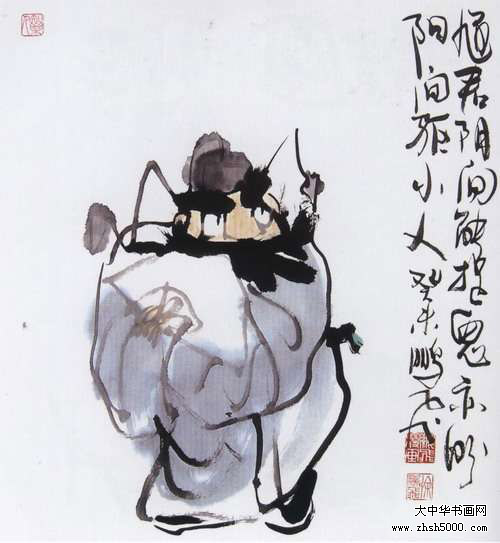 君阴间能捉鬼亦
阳间驱小人 癸未鹏飞
大中华书画网
www.zhsh5000.com